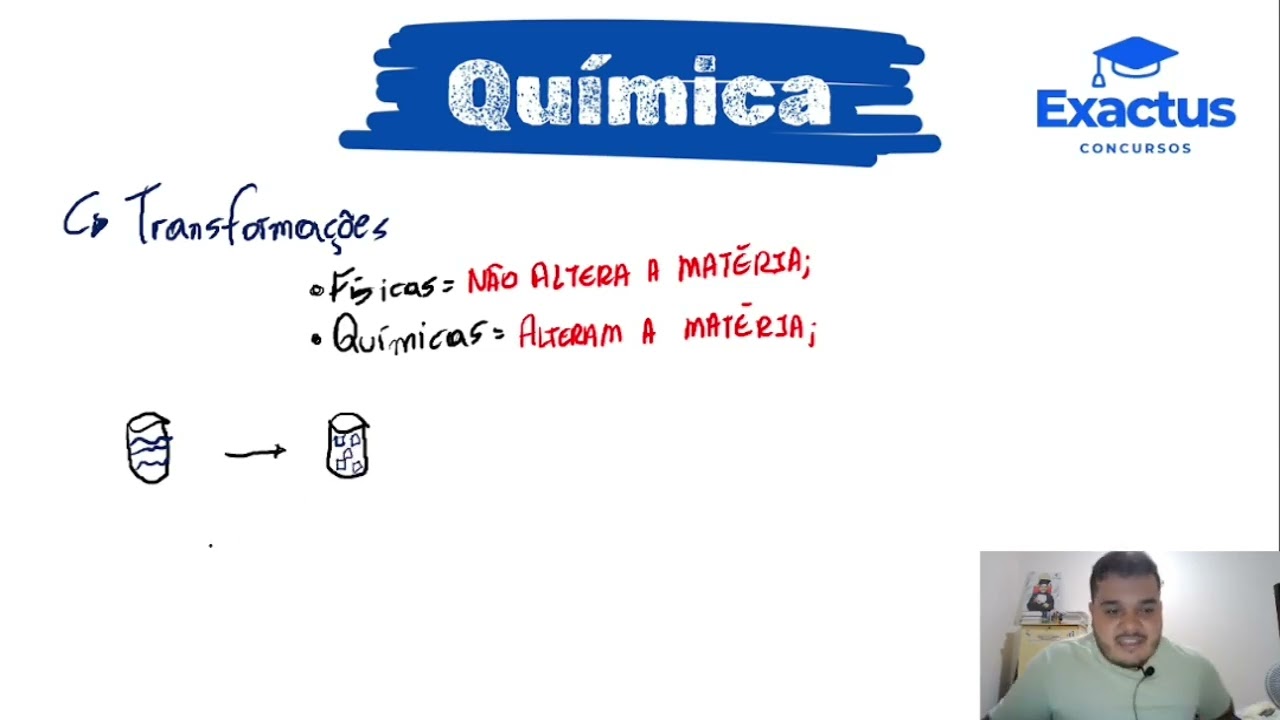 Química
Exactus
CONCURSOS
Transformações
• Físicas = NÃO ALTERA A MATÉRIA;
• Químicas = ALTERAM A MATÉRIA;